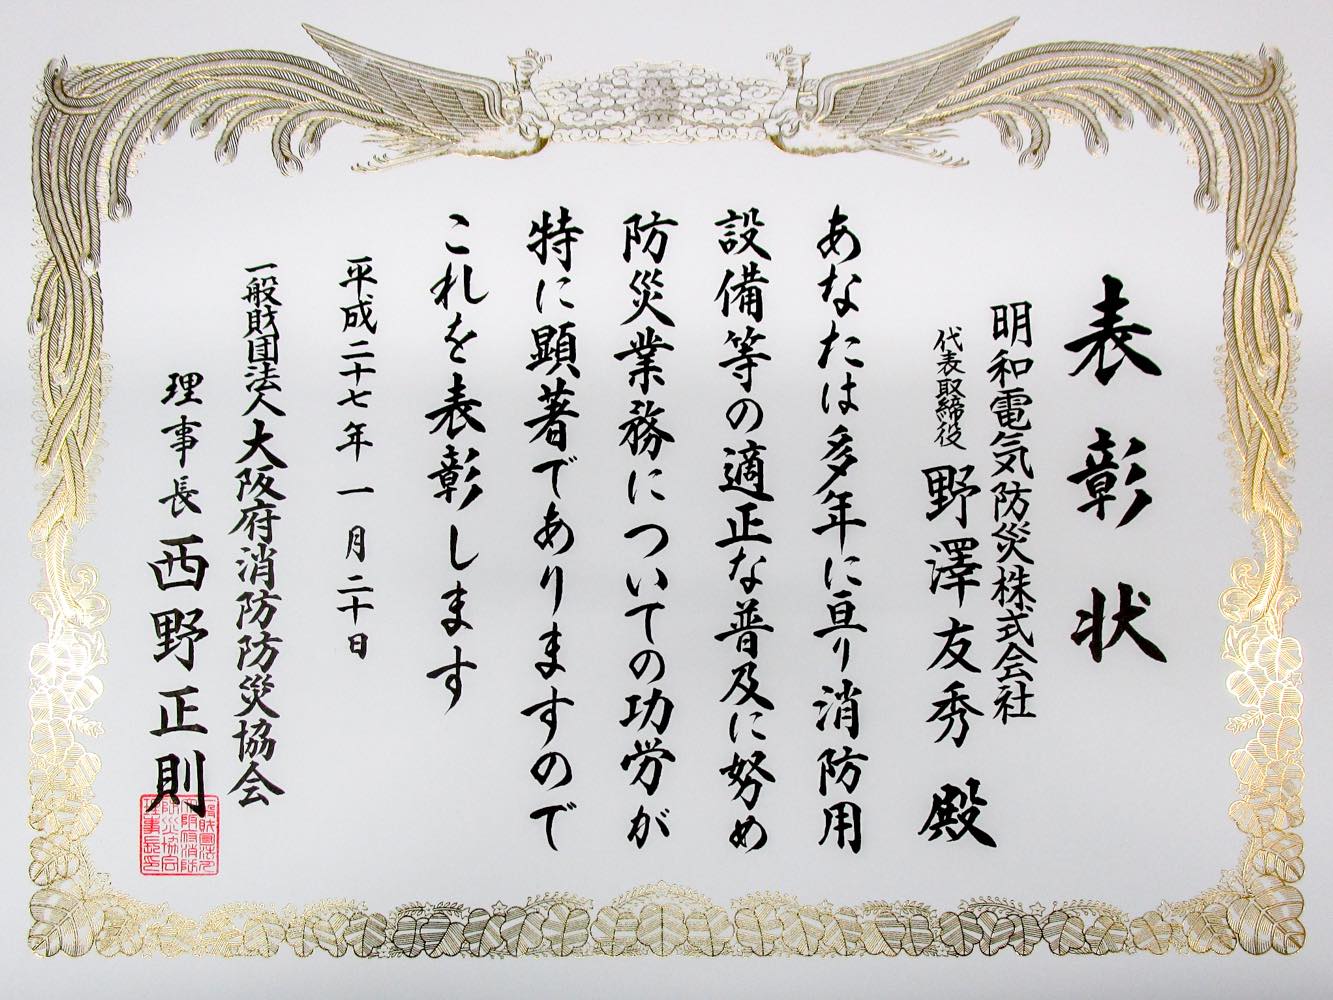 表彰状
明和電気防災株式会社
代表取締役 野澤友秀 殿
あなたは多年に亘り消防用
設備等の適正な普及に努め
防災業務についての功労が
特に顕著でありますので
これを表彰します
平成二十七年一月二十日
一般財団法人大阪府消防防災協会
理事長 西野正則
一般財団法人
大阪府消防
防災協会
理事長印